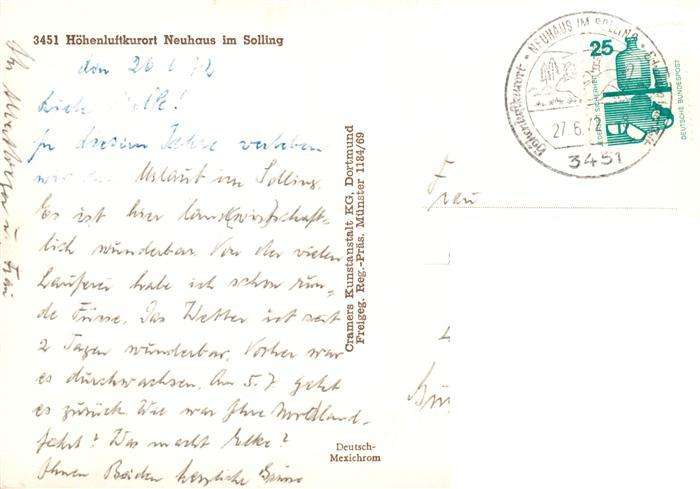 3451 Höhenluftkurort Neuhaus im Solling
den 26.6.72
In diesem Jahre verleben
wir den Urlaub im Solling.
Es ist hier landwirtschaft-
lich wunderbar. Von der vielen
Lauferei habe ich schon run-
de Füsse. Das Wetter ist seit
2 Tagen wunderbar. Vorher war
es durchwachsen. Am 5.7 geht
es zurück. Wie war Ihre Nordland-
fahrt? Was macht Elke?
Ihnen Beiden herzliche Grüsse
u. Frau
Deutsch-
Mexichrom
Cramers Kunstanstalt KG. Dortmund
Freigeg. Reg.-Präs. Münster 1184/69
NEUHAUS IM SOLLING
Höhenluftkurort
27.6.72
3451
25
DEUTSCHE BUNDESPOST
Frau